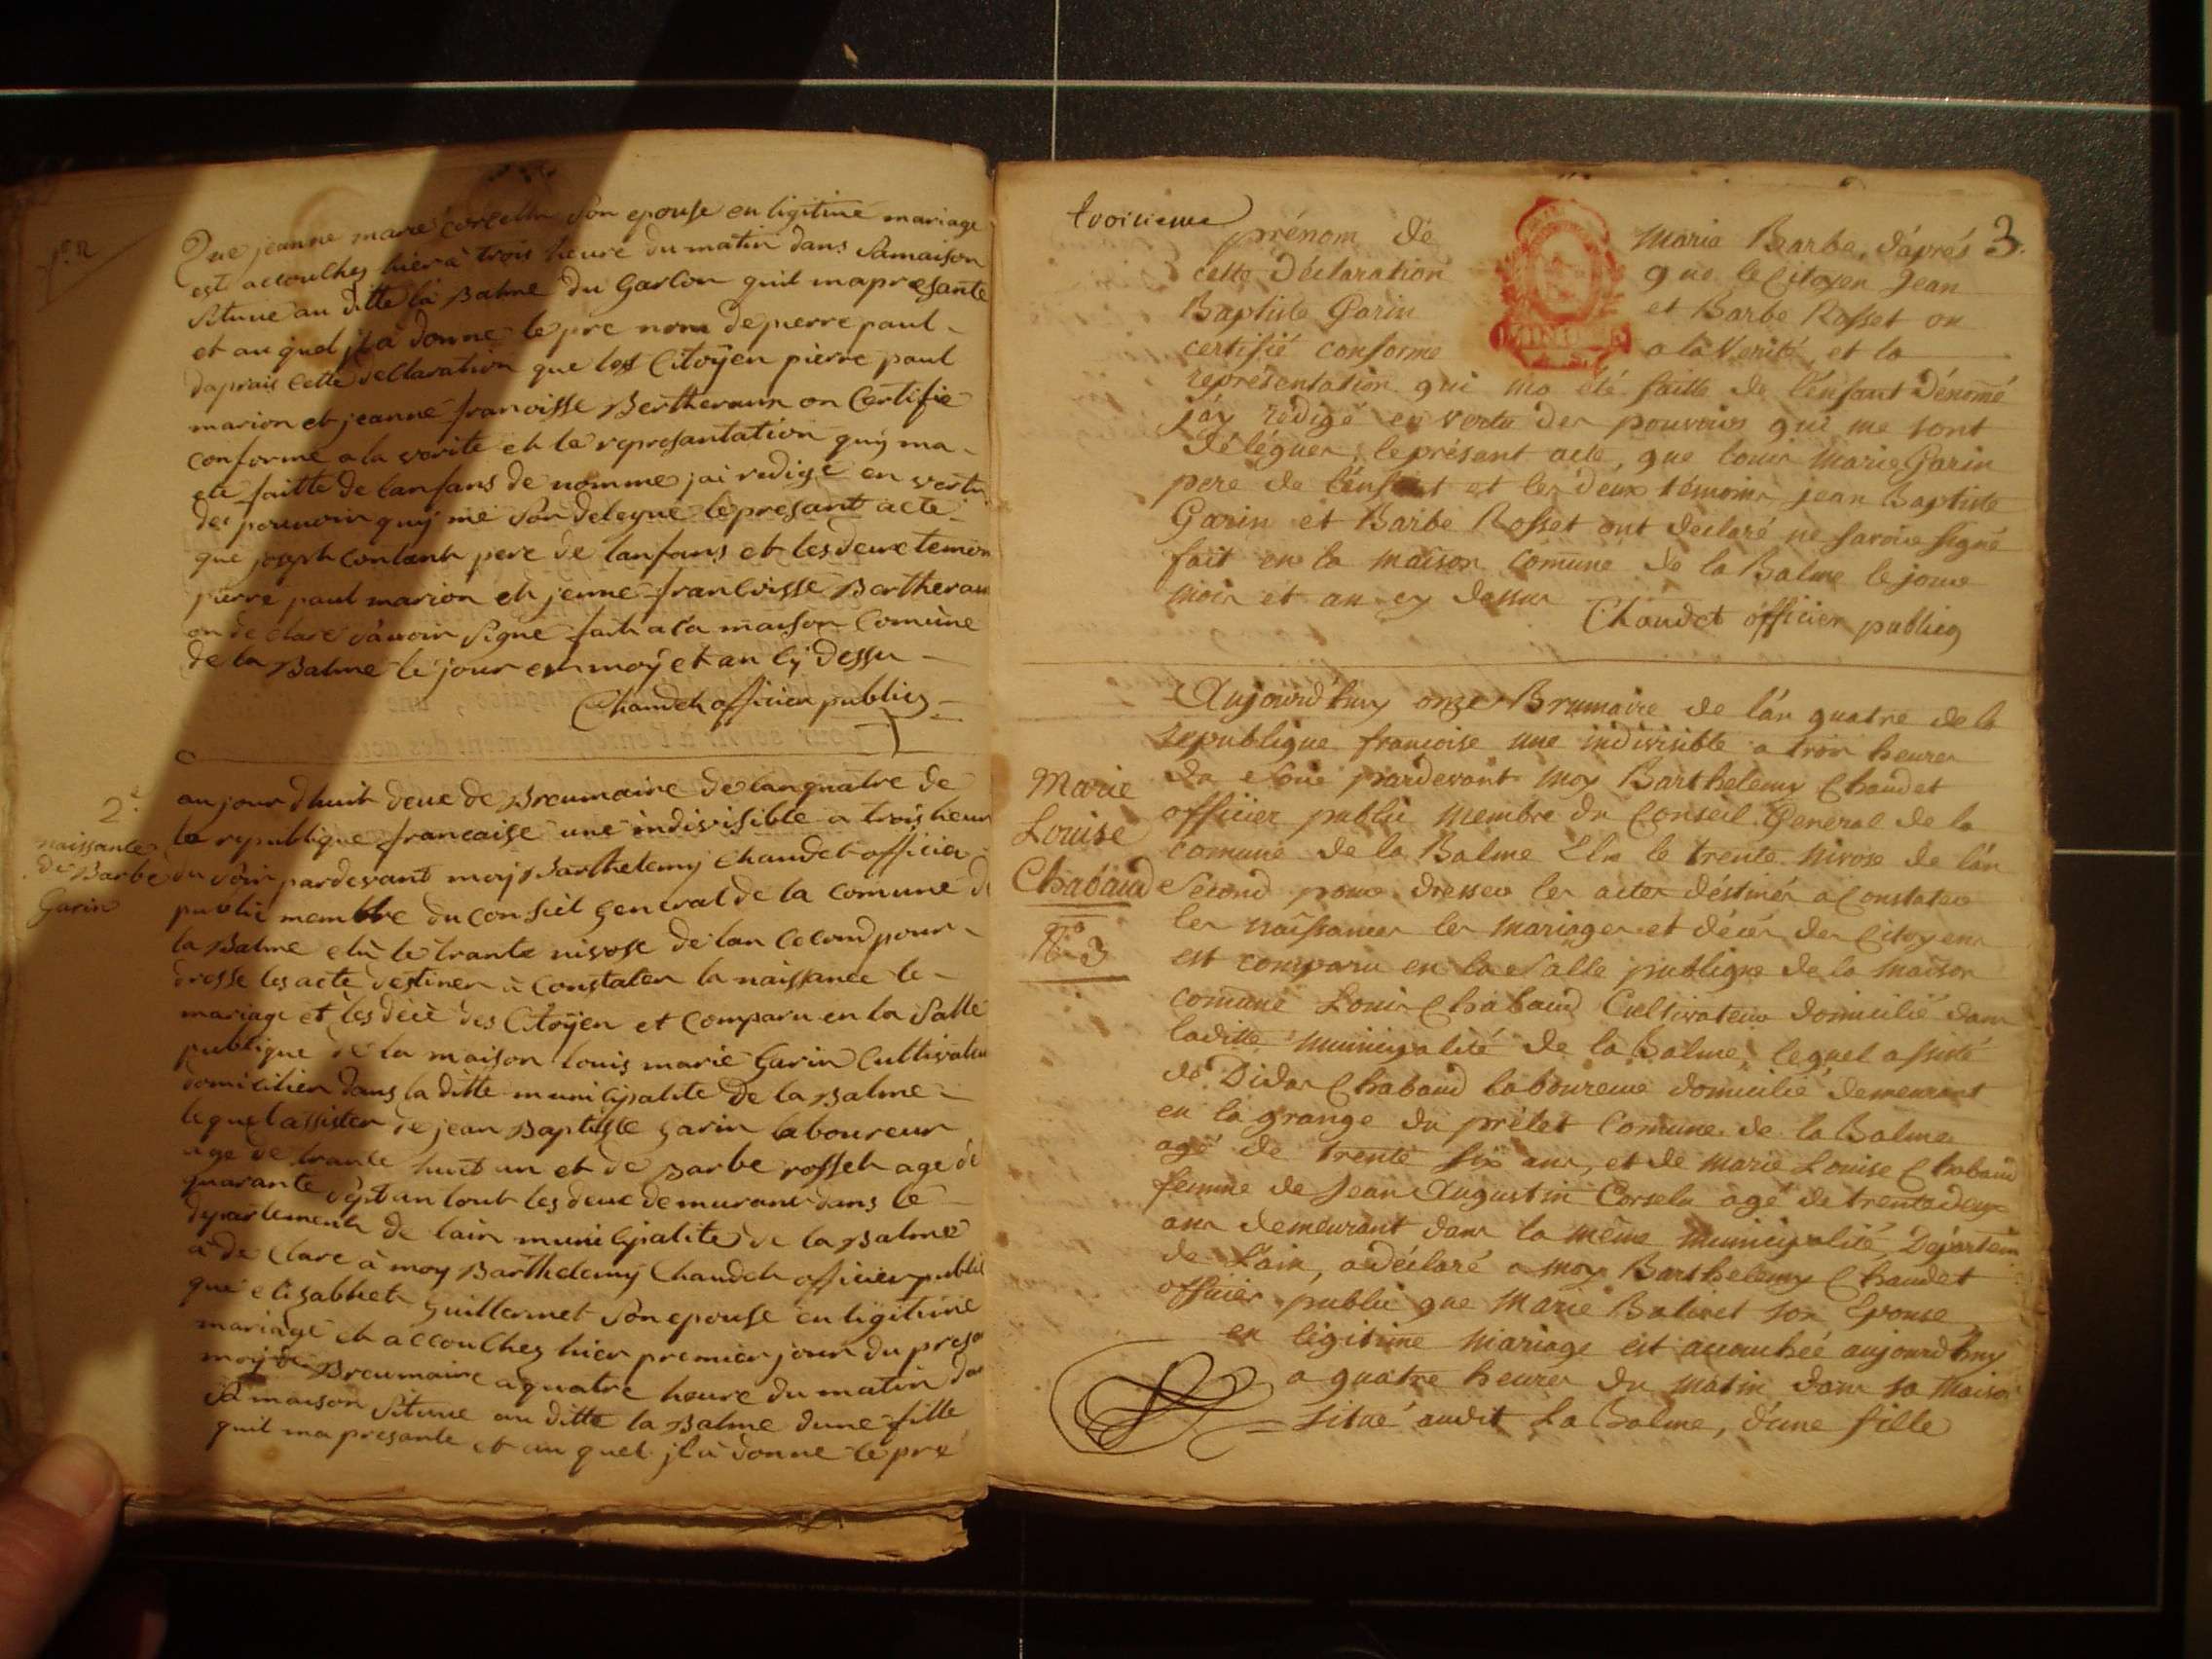 Que jeanne marie corcellu Son epouse en ligitime mariage
est accouchez hier à trois heure du matin dans Samaison
Situee au ditte la Balme du Garson quil mapresante
et au quel jl à donne le pre nom de pierre paul
daprais cette declaration que les Citoÿen pierre paul
marion et jeanne francoisse Bertheraux on Certifie
conforme a la verite et la represantation quÿ ma
ete faitte de lanfans de nomme jai redige en vertu
des pouvoir quÿ me Son delegue le presant acte
que joseph contant pere de lanfans et les deux temoin
pierre paul marion et jenne francoisse Bertheraux
on de clare Savoir Signe fait a la maison Comune
de la Balme le jour en moÿ et an Cÿ dessu
Chaudet officier publicq
2e
naissance
de Barbe
Garin
au jour dhuit deux de Breumaire de lan quatre de
la republique francaise une indivisible a trois heure
du Soir pardevant moÿ Barthelemÿ Chaudet officier
public membre du conseil general de la comune de
la Balme elu le trante nivose de lan Cecond pour
dresse les acte destiner à Constater la naissance le
mariage et les décè des Citoÿen et Comparu en la Salle
publique de la maison louis marie Garin Cultivateur
domicilier dans la ditte municipalite de la Balme
le quel assister de jean Baptiste Garin laboureur
age de trante huit an et de Barbe rosset age de
quarante Sept an tout les deux demurant dans le
departement de lain municipalite de la Balme
a de Clare à moy Barthelemÿ Chaudet officier public
que elisabhet Guillermet Son epouse en ligitime
mariage et accouchez hier premier jour du presant
moy de Breumaire a quatre heure du matin dans
Sa maison Situee au ditte la Balme dune fille
quil ma presante et au quel jl à donne le pre
troisieme
3.
prénom de Marie Barbe, d'aprés
cette Déclaration que le Citoyen Jean
Baptiste Garin et Barbe Rosset on
certifié conforme a la Verité, et la
représentation qui ma été faitte de l'enfant Dénomé
j'ay redigé en vertu des pouvoirs qui me sont
Déléguer, le présent acte, que louis Marie Garin
pere de l'enfant et les deux témoins jean Baptiste
Garin et Barbe Rosset ont declaré ne savoir signé
fait en la maison Comune de la Balme le jour
mois et an cy dessus
Chaudet officier publicq
Marie
Louise
Chabaud
No 3
Aujourd'huy onze Brumaire de l'an quatre de la
republique francoise une indivisible a trois heures
du Soir pardevant moy Barthelemy Chaudet
officier public membre du Conseil General de la
comune de la Balme Elu le trente Nivose de l'an
Second pour dresser les actes déstinés a Constater
les naissances les mariages et décés des Citoyens
est comparu en la Salle publique de la maison
comune Louis Chabaud Cultivateur domicilié dans
laditte municipalité de la Balme, lequel assisté
de Didas Chabaud laboureur domicilié demeurant
en la grange du prélet Comune de la Balme
agé de trente six ans, et de Marie Louise Chabaud
femme de Jean Augustin Corselu agé de trente deux
ans demeurant dans la même municipalité, Departem
de l'ain, a déclaré a moy Barthelemy Chaudet
officier public que Marie Balivet son Epouse
en légitime Mariage est accouchée aujourd'huy
a quatre heures du matin dans sa Maison
situé audit La Balme, d'une fille